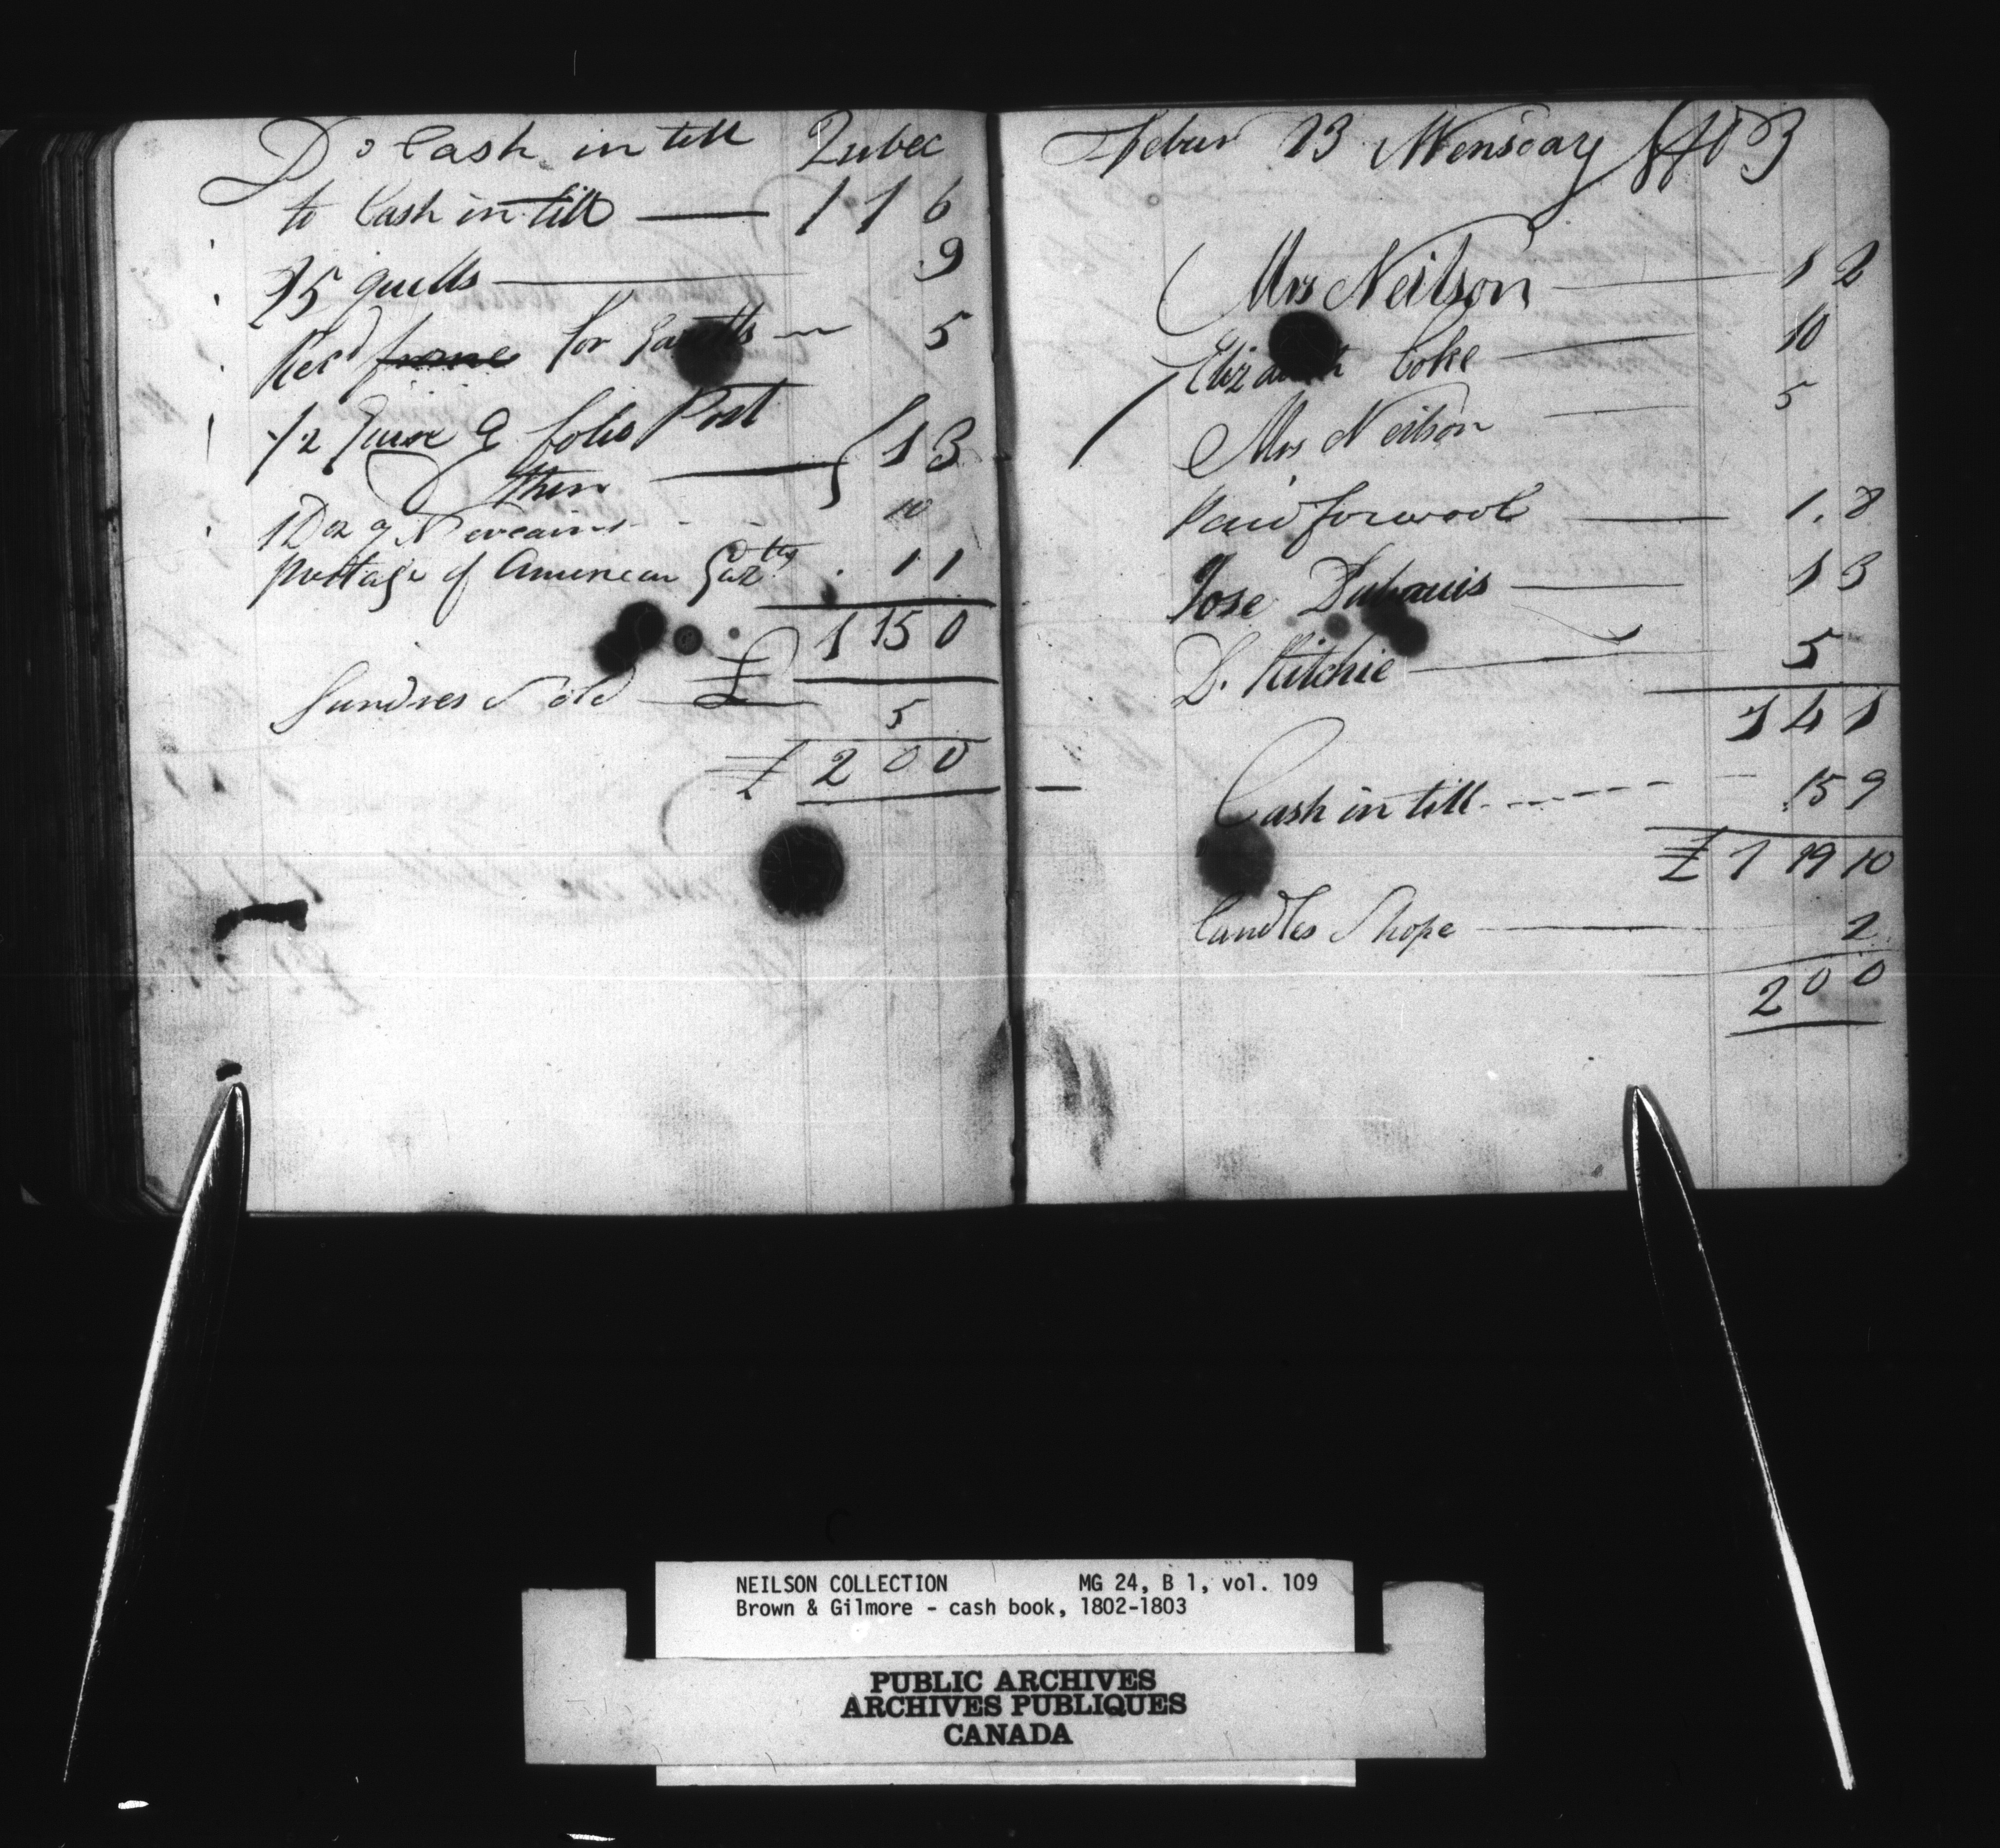 Do Cash in till Qubec
to Cash in till — 1 1 6
25 quells — 9
Recd frame for — 5
1/2 Quire of folio Post
thin — 1 3
1 Doz of 10
postage of American Gaztts . 1 1
1 15 0
Sundres Sold — £ 5
£ 2 0 0
Febur 23 Wensday 1803
Mrs Neilson — 1 2
Elizabeth Coke — 10
Mrs Neilson 5
Paid for wood — 1. 8
Jose Dubauis — 1 3
D. Ritchie — 5
1 4 1
Cash in till - - - - 15 9
£ 1 19 10
Candles Shope — 2
2 0 0
NEILSON COLLECTION MG 24, B 1, vol. 109
Brown & Gilmore - cash book, 1802-1803
PUBLIC ARCHIVES
ARCHIVES PUBLIQUES
CANADA